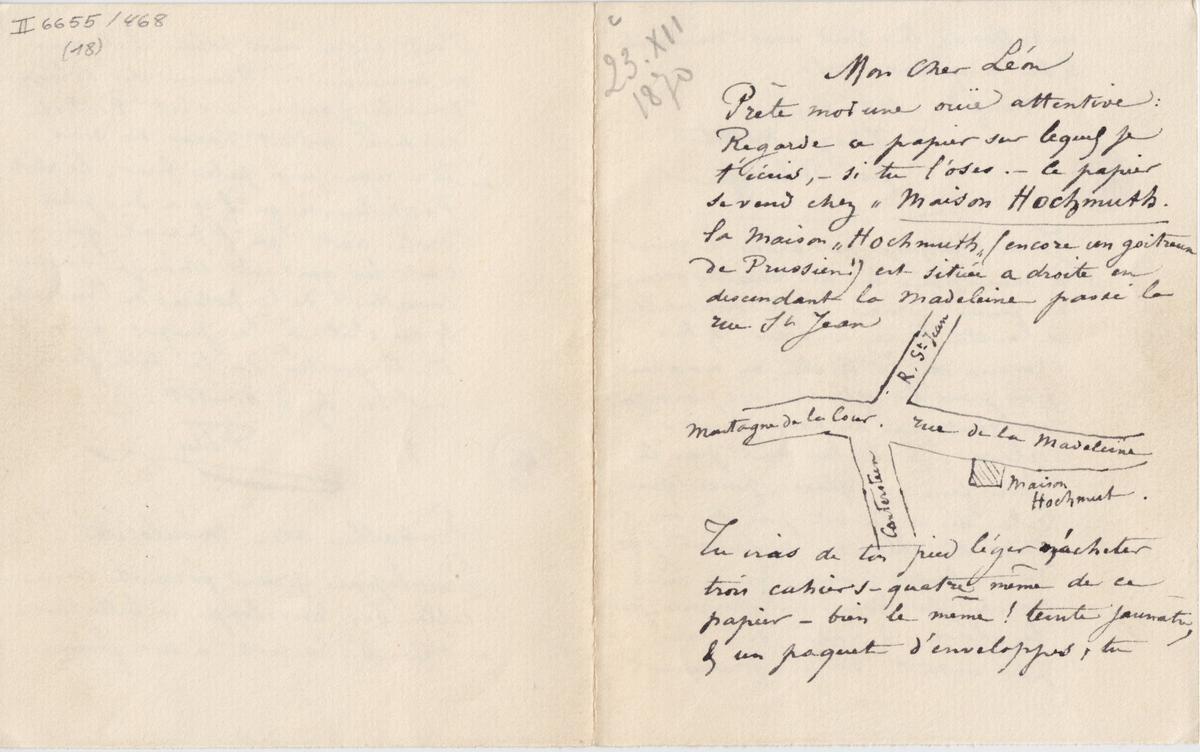 II 6655 / 468
(18)
c
23.XII
1870
Mon cher Léon
Prête moi une ouïe attentive :
Regarde ce papier sur lequel je
t'écris, – si tu l'oses. – Ce papier
se vend chez „ Maison Hochmuth.
la Maison „Hochmuth„ (encore un goitreux
de Prussien!) est située a droite en
descendant la Madeleine passé la
rue St Jean
R. St Jean
Montagne de la Cour.
rue de la Madeleine
Canterstein
Maison
Hochmut.
Tu iras de ton pied léger m'acheter
trois cahiers – quatre même de ce
papier – bien le même ! teinte jaunâtre,
& un paquet d'enveloppes, tu